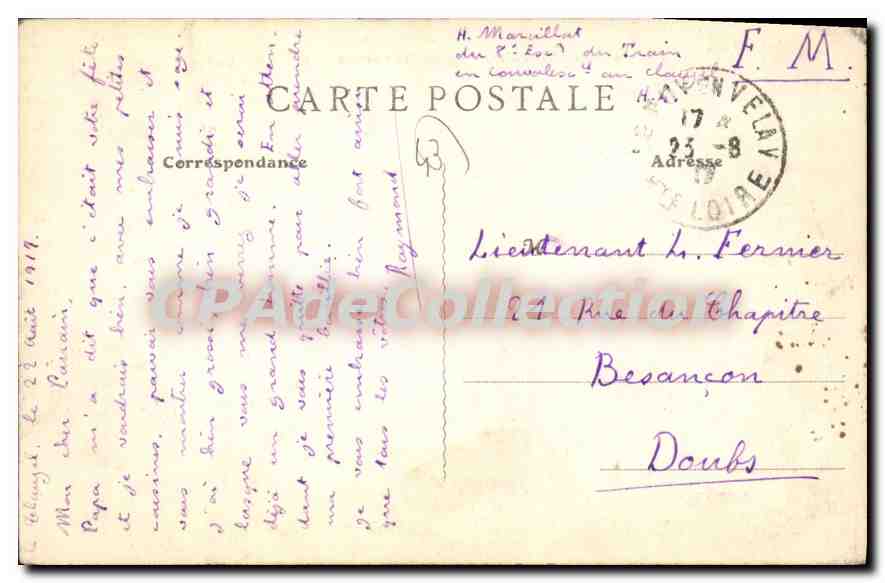 H. Marcillat
du 8e Esc. du Train
en convalesce
F. M.
CARTE POSTALE
Correspondance
Adresse
EN VELAY
17
23 -8
LOIRE
43
Lieutenant L. Fermier
21 Rue du Chapitre
Besançon
Doubs
le 22 août 1917.
Mon cher Parrain,
Papa m'a dit que c'était votre fête
et je voudrais bien, avec mes petites
cousines, pouvoir vous embrasser et
vous montrer comme je suis sage.
J'ai bien grossi, bien grandi et
lorsque vous me verrez je serai
déjà un grand homme. En attendant
je vous quitte pour aller prendre
ma première bouillie.
Je vous embrasse bien fort ainsi
que tous les vôtres.
Raymond
CPAdeCollection.com